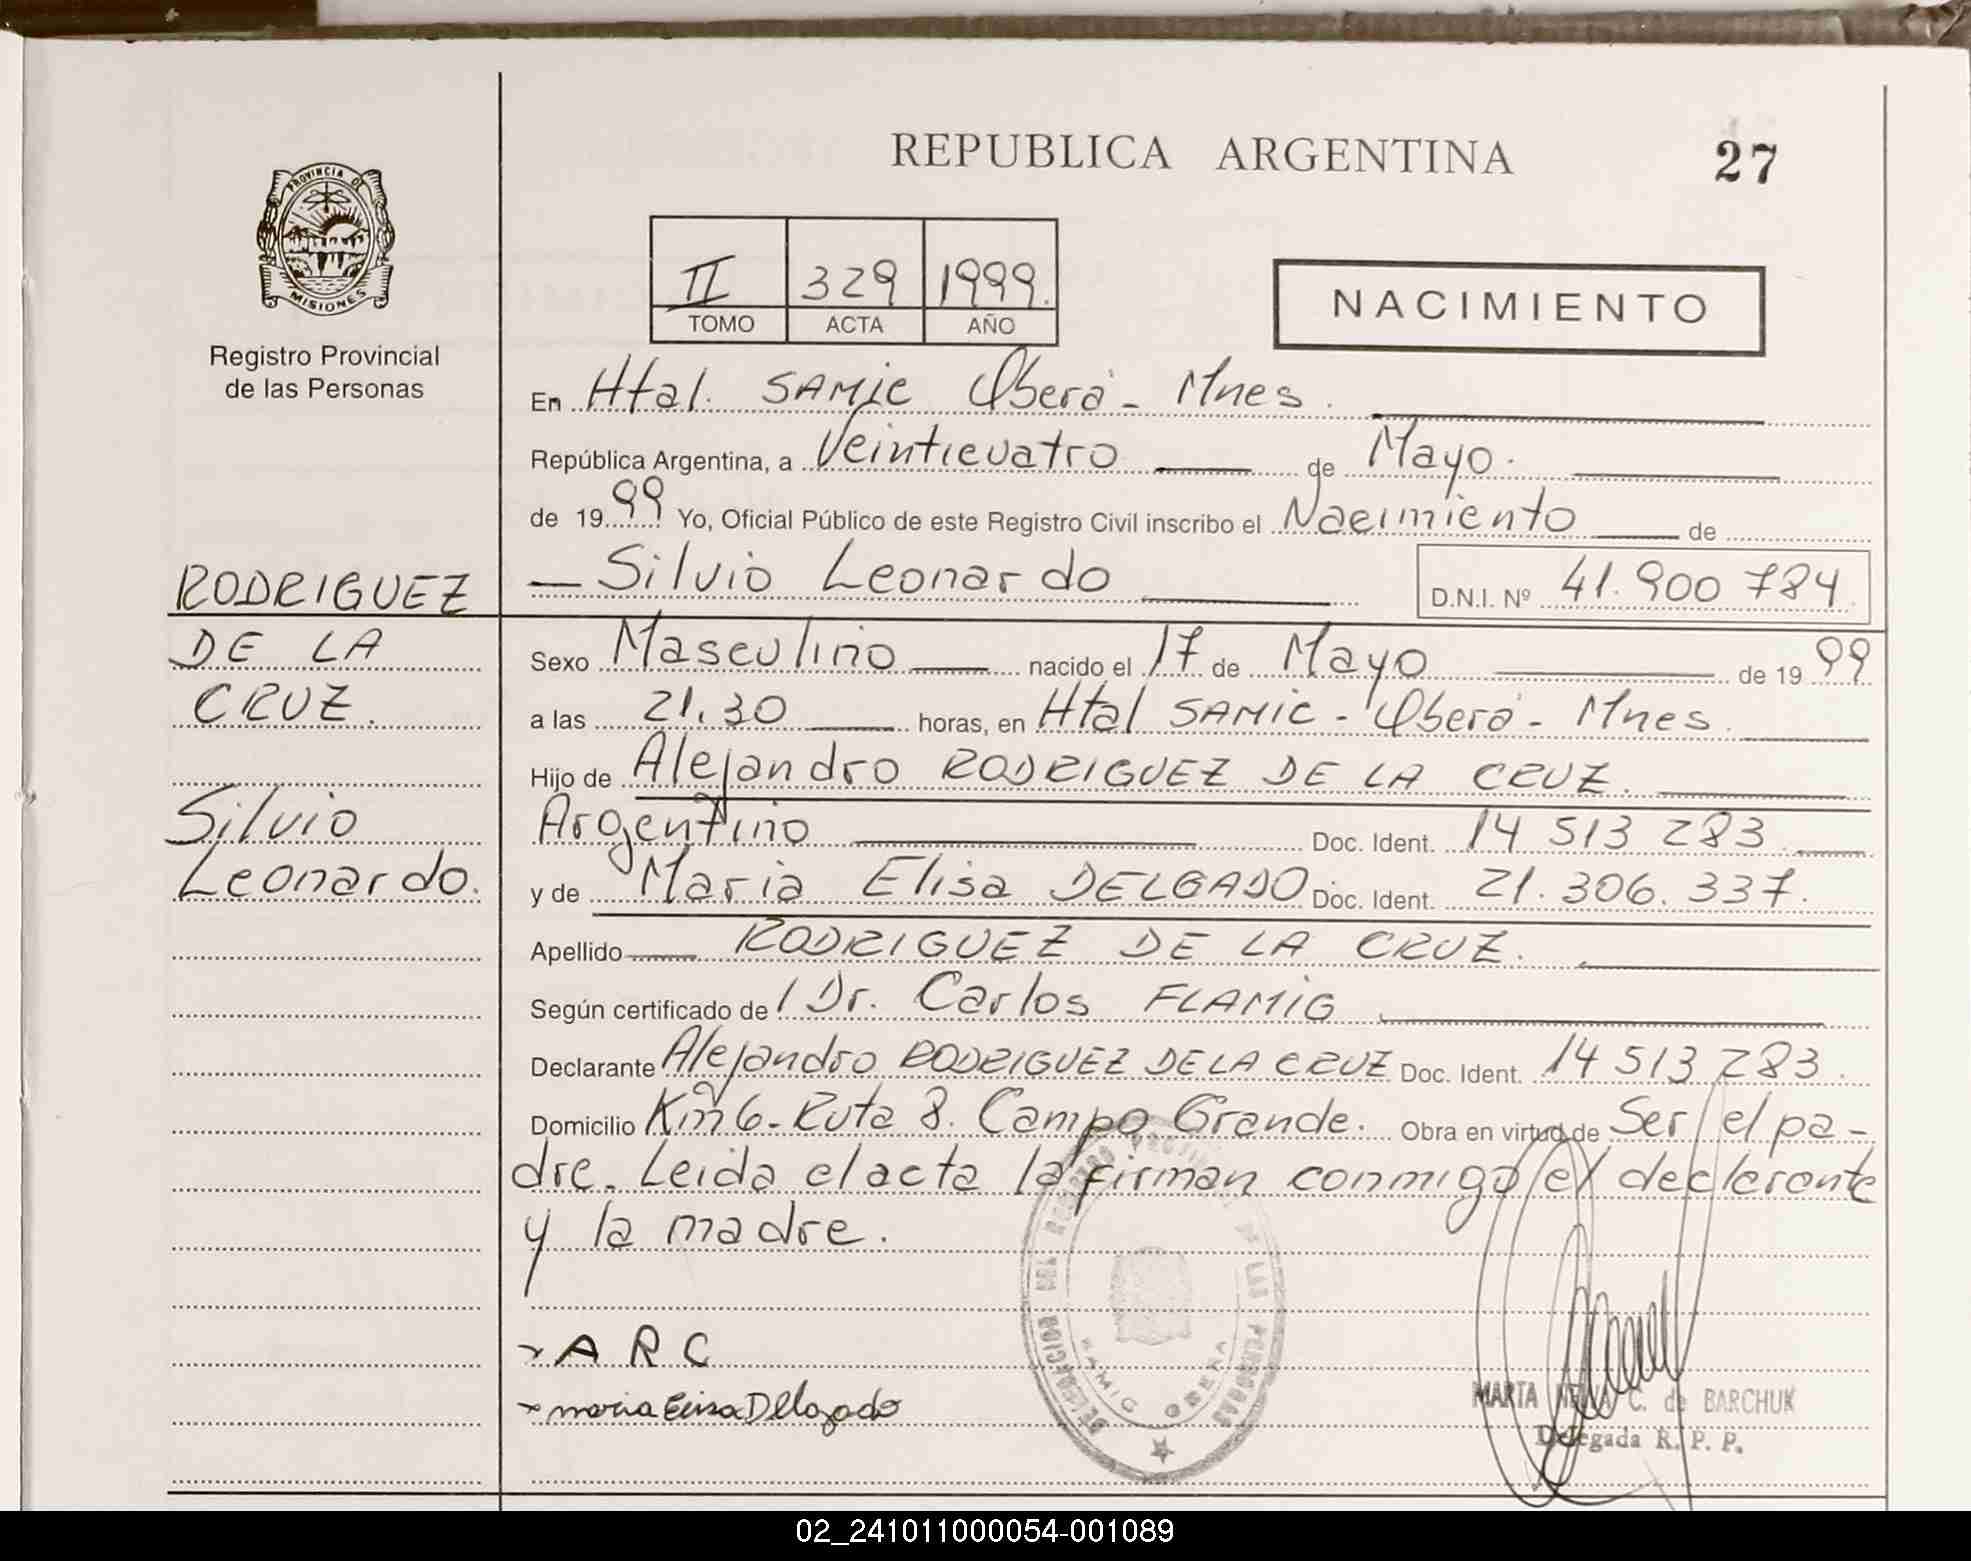 REPUBLICA ARGENTINA
27
PROVINCIA DE
MISIONES
Registro Provincial
de las Personas
II 329 1999.
TOMO ACTA AÑO
NACIMIENTO
En Htal. SAMIC Oberá - Mnes.
República Argentina, a Veinticuatro de Mayo.
de 1999 Yo, Oficial Público de este Registro Civil inscribo el Nacimiento de
Silvio Leonardo D.N.I. Nº 41.900 784
RODRIGUEZ
DE LA
CRUZ.
Silvio
Leonardo.
Sexo Masculino nacido el 17 de Mayo de 1999
a las 21.30 horas, en Htal SAMIC - Oberá - Mnes.
Hijo de Alejandro RODRIGUEZ DE LA CRUZ.
Argentino Doc. Ident. 14 513 283
y de Maria Elisa DELGADO Doc. Ident. 21.306.337.
Apellido RODRIGUEZ DE LA CRUZ.
Según certificado de Dr. Carlos FLAMIG
Declarante Alejandro RODRIGUEZ DE LA CRUZ Doc. Ident. 14 513 283.
Domicilio Km 6 - Ruta 8. Campo Grande. Obra en virtud de Ser el pa-
dre. Leida el acta la firman conmigo el declarante
y la madre.
A R C
maria Elisa Delgado
DELEGACION DEL REGISTRO PROVINCIAL DE LAS PERSONAS
SAMIC OBERA
MARTA C. de BARCHUK
Delegada R. P. P.
02_241011000054-001089